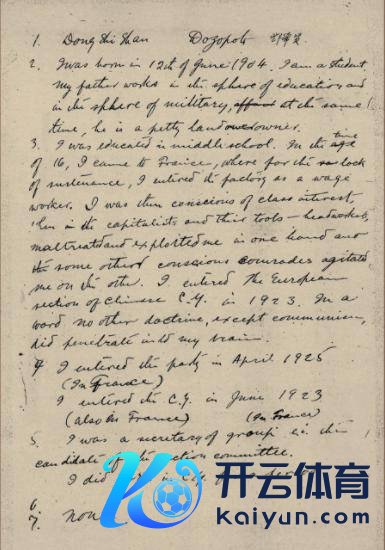 1. Dong Shi Shan Dozopob
2. I was born in 12th of June 1904. I am a student
my father works in the sphere of education, and
in the sphere of military, at the same
time, he is a petty landowner.
3. I was educated in middle school. In the time
of 16, I came to France, where for the lack
of sustenance, I entered the factory as a wage
worker. I was then conscious of class interest,
when in the capitalists and their tools - headworkers,
maltreated and exploited me in one hand and
some other conscious comrades agitated
me on the other. I entered the European
section of Chinese C.Y. in 1923. In a
word no other doctrine, except communism,
did penetrate into my brain.
4 I entered the party in April 1925
(In France)
I entered the C.Y. in June 1923
(also in France) (In France)
5. I was a secretary of group in the
candidate of the section committee.
I did in C.Y.
6.
7. Non
开云体育
kaiyun.com